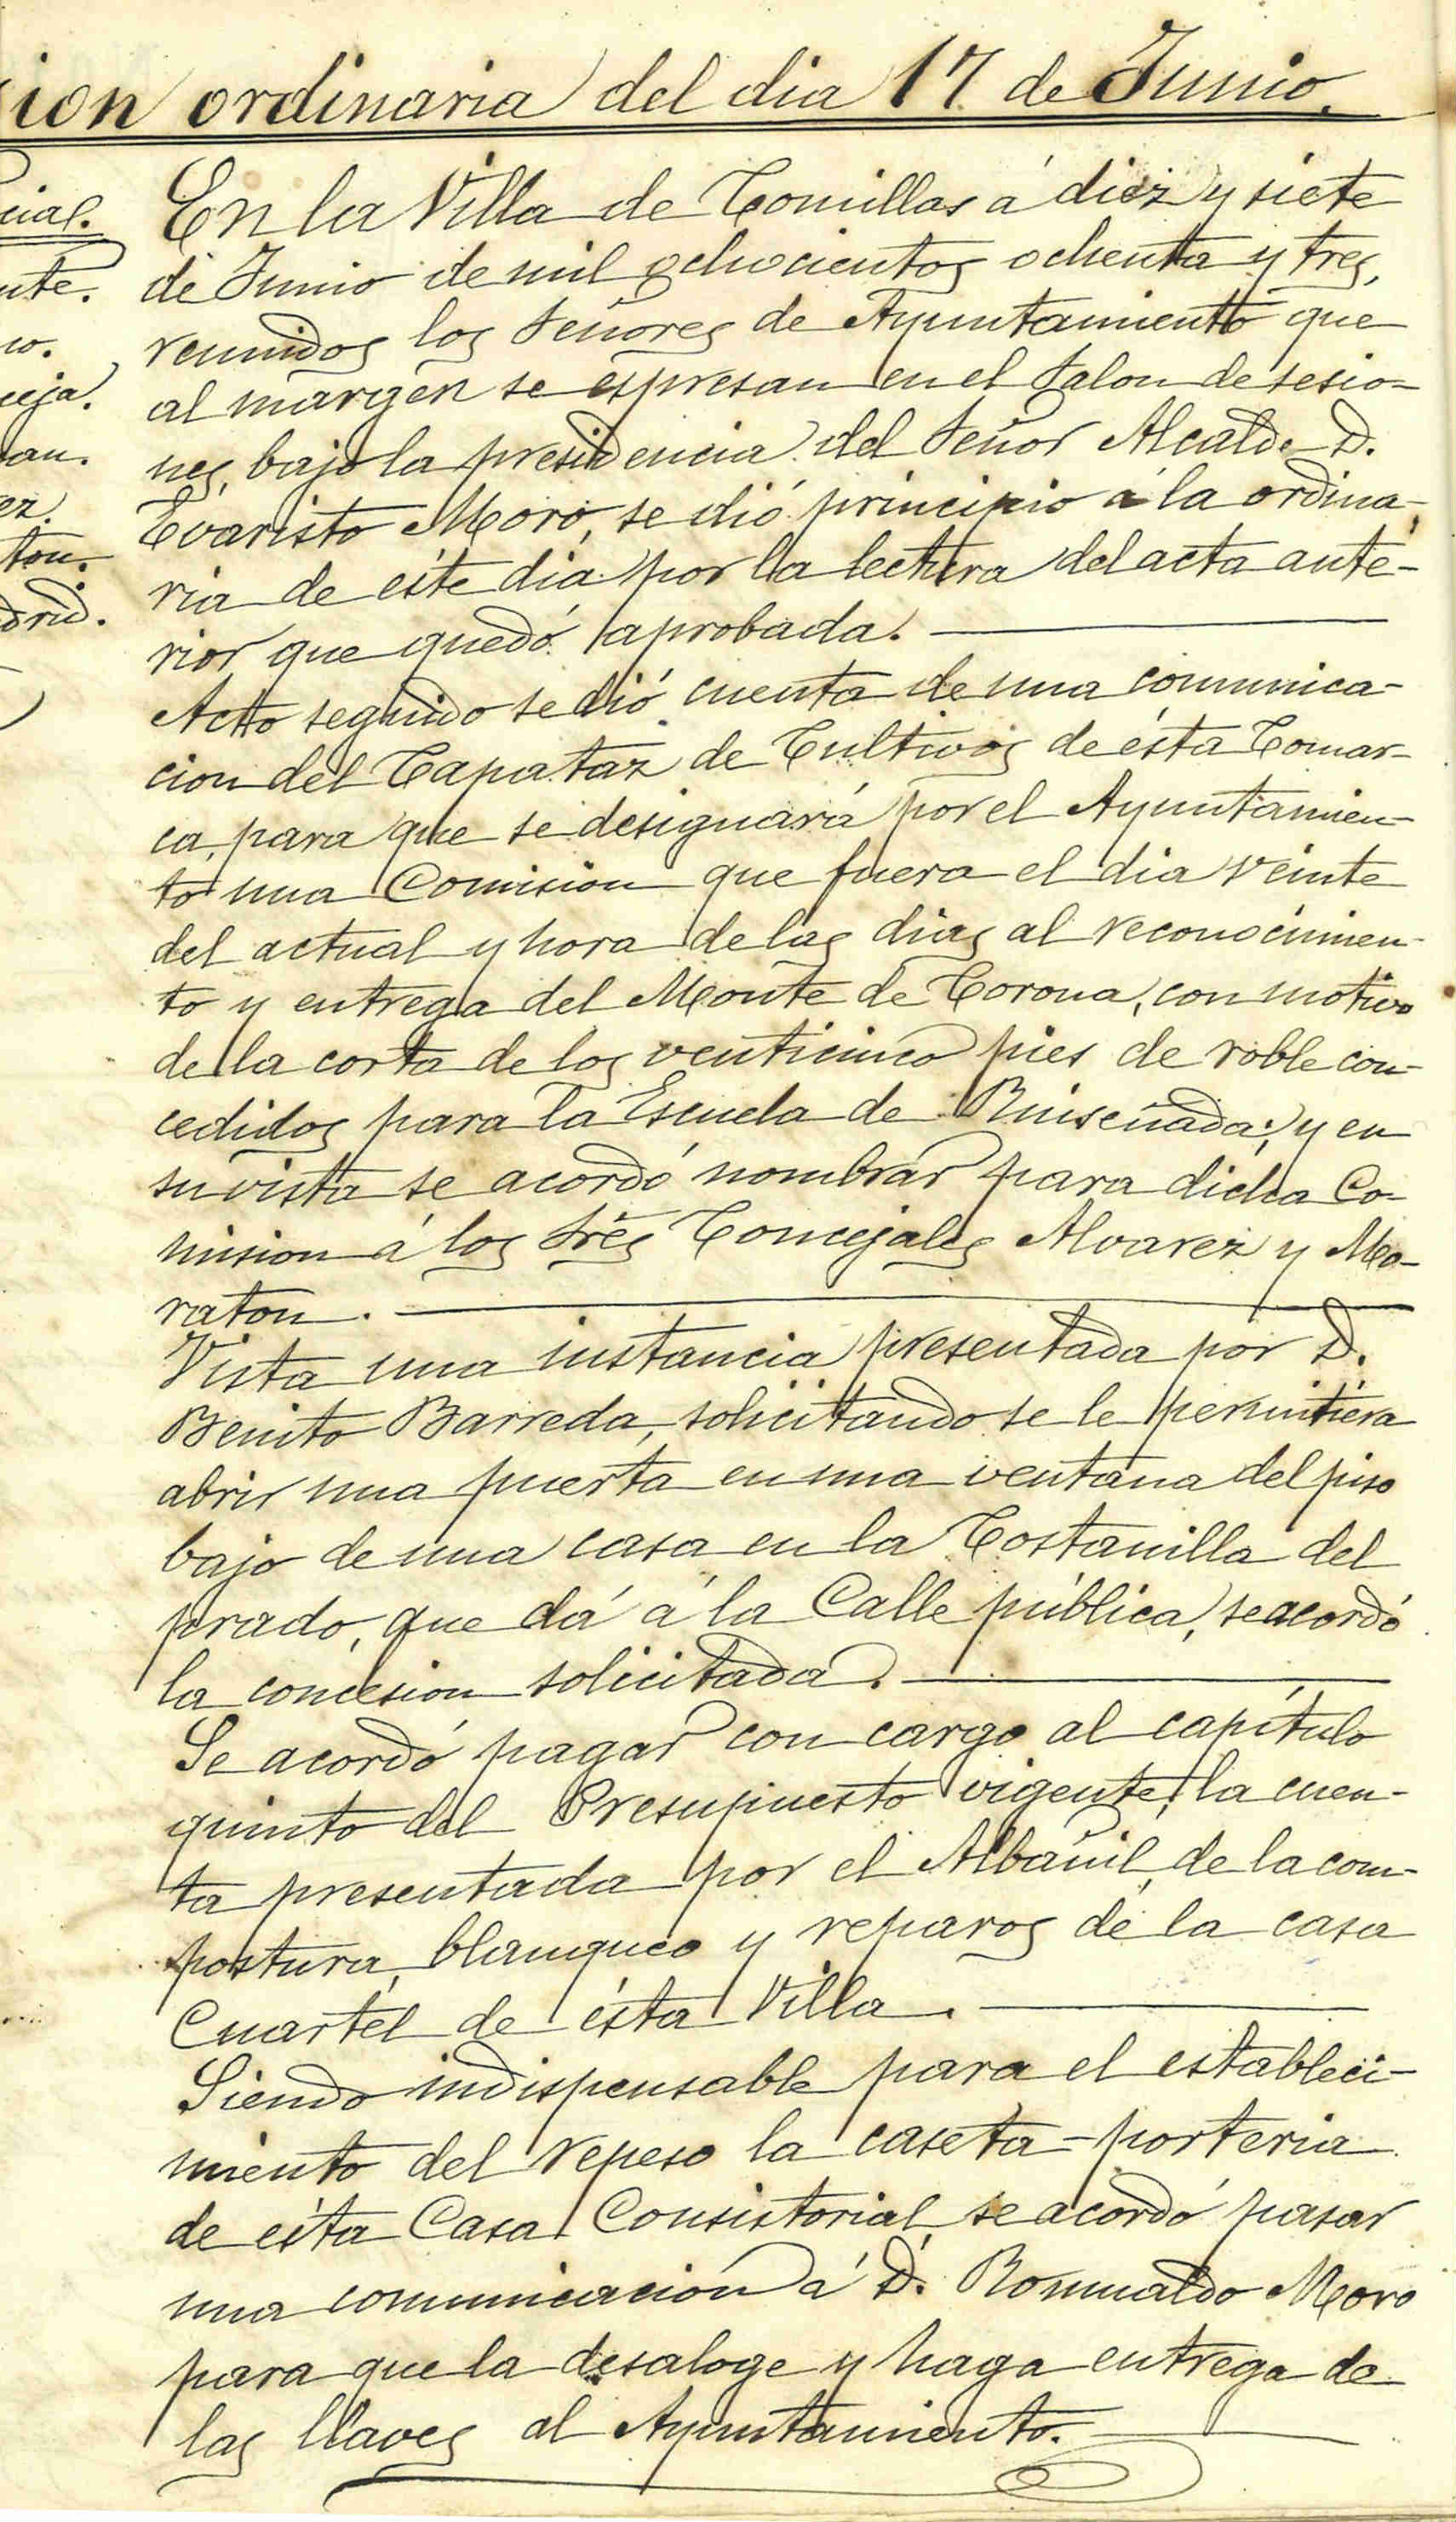 ion ordinaria del dia 17 de Junio.
cial.
nte.
co.
ceja.
an.
ez.
ton.
drid.
En la Villa de Comillas á diez y siete
de Junio de mil ochocientos ochenta y tres,
reunidos los Señores de Ayuntamiento que
al margen se espresan en el Salon de sesio-
nes, bajo la presidencia del Señor Alcalde D.
Evaristo Moro, se dió principio á la ordina-
ria de éste dia por la lectura del acta ante-
rior que quedó aprobada.
Acto seguido se dió cuenta de una comunica-
cion del Capataz de Cultivos de ésta Comar-
ca, para que se designará por el Ayuntamien-
to una Comision que fuera el dia veinte
del actual y hora de las dias al reconocimien-
to y entrega del Monte de Corona, con motivo
de la corta de los venticinco pies de roble con-
cedidos para la Escuela de Ruiseñada; y en
su vista se acordó nombrar para dicha Co-
mision á los Sres Concejales Alvarez y Mo-
raton.
Vista una instancia presentada por D.
Benito Barreda, solicitando se le permitiera
abrir una puerta en una ventana del piso
bajo de una casa en la Costanilla del
prado, que dá á la Calle pública, se acordó
la concesion solicitada.
Se acordó pagar con cargo al capítulo
quinto del Presupuesto vigente, la cuen-
ta presentada por el Albañil, de la com-
postura, blanqueo y reparos de la casa
Cuartel de ésta Villa.
Siendo indispensable para el estableci-
miento del repeso la caseta-porteria
de ésta Casa Consistorial, se acordó pasar
una comunicación á D. Romualdo Moro
para que la desaloge y haga entrega de
las llaves al Ayuntamiento.